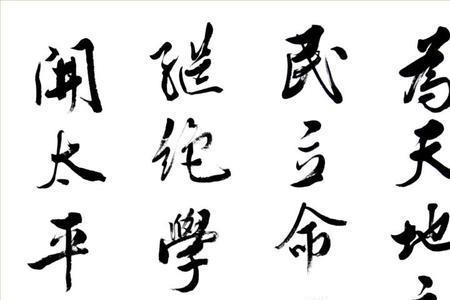 為天地
民立命
繼絕學
開太平